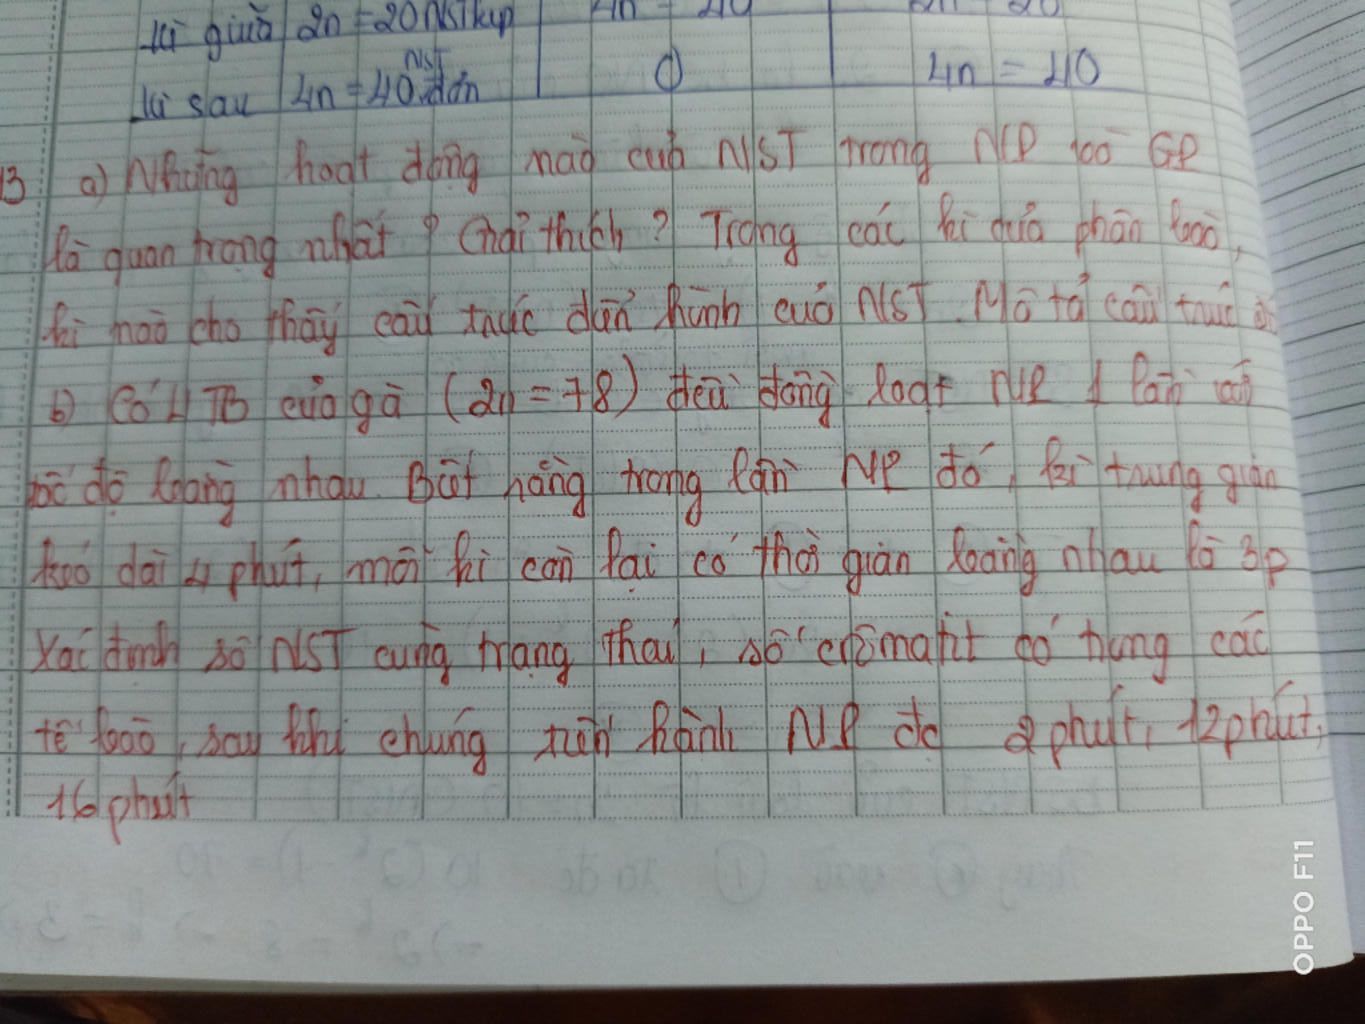 kì giữa 2n = 20 NST kép 4n = 40 2n = 20
kì sau 4n = 40 NST đơn 0 4n = 40
13 a) Những hoạt động nào của NST trong NP và GP
là quan trọng nhất ? Giải thích ? Trong các kì quá phân bào,
kì nào cho thấy cấu trúc điển hình của NST. Mô tả cấu trúc đó
b) Có 4 TB của gà (2n = 78) đều đồng loạt NP 1 lần với
tốc độ bằng nhau. Biết rằng trong lần NP đó, kì trung gian
kéo dài 4 phút, mỗi kì còn lại có thời gian bằng nhau là 3p
Xác định số NST cùng trạng thái, số crômatit có trong các
tế bào, sau khi chúng tiến hành NP đc 2 phút, 12 phút,
16 phút
OPPO F11